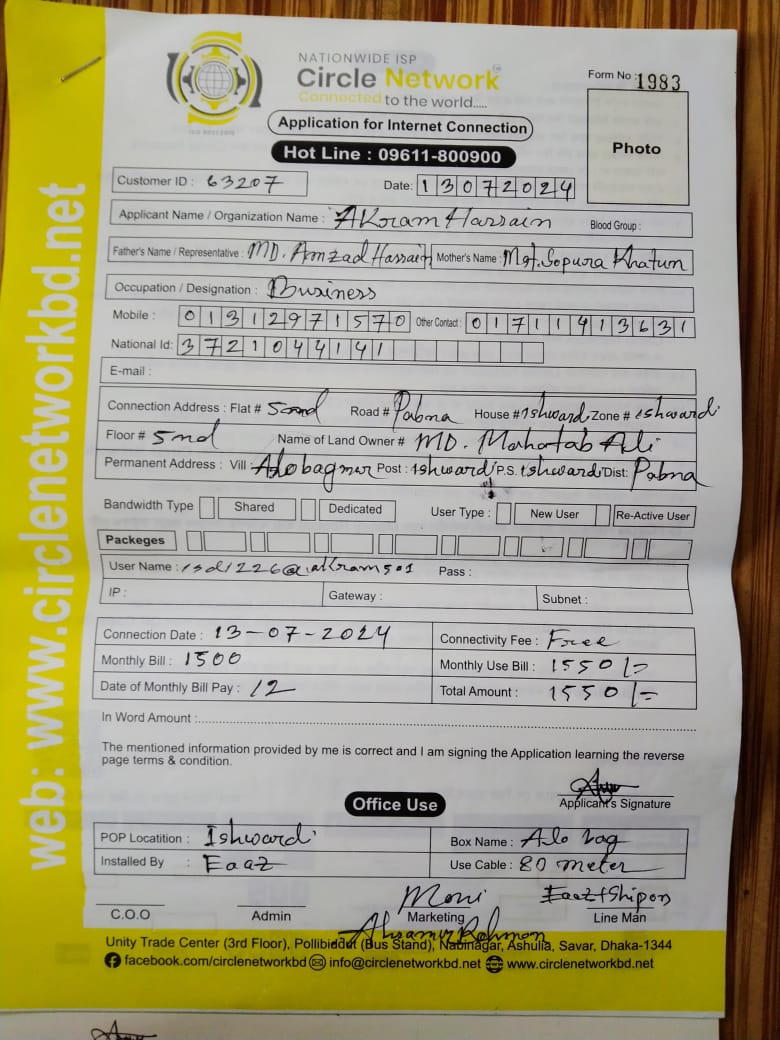 NATIONWIDE ISP
Circle Network
Connected to the world.....
Form No : 1983
Application for Internet Connection
Photo
Hot Line : 09611-800900
Customer ID : 63207
Date: 13072024
Applicant Name / Organization Name : AKram Hassain Blood Group :
Father's Name / Representative : MD. Amzad Hassain Mother's Name : Mst. Sopura Khatun
Occupation / Designation : Business
Mobile : 01312971570 Other Contact : 01711413631
National Id: 3721044141
E-mail :
Connection Address : Flat # 5nd Road # Pabna House # Ishwardi Zone # ishwardi
Floor # 5nd Name of Land Owner # MD. Mahatab Ali
Permanent Address : Vill : Post : ishwardi P.S. ishwardi Dist: Pabna
Bandwidth Type Shared Dedicated User Type : New User Re-Active User
Packeges
User Name : Pass :
IP : Gateway : Subnet :
Connection Date : 13-07-2024 Connectivity Fee : Free
Monthly Bill : 1500 Monthly Use Bill : 1550/=
Date of Monthly Bill Pay : 12 Total Amount : 1550/=
In Word Amount :
The mentioned information provided by me is correct and I am signing the Application learning the reverse
page terms & condition.
Applicant's Signature
Office Use
POP Locatition : Ishwardi Box Name : Alo bag
Installed By : Eaaz Use Cable : 80 meter
Moni Eaaz+Shipon
C.O.O Admin Marketing Line Man
Rahman
Unity Trade Center (3rd Floor), Pollibidaut (Bus Stand), Nabinagar, Ashulia, Savar, Dhaka-1344
facebook.com/circlenetworkbd info@circlenetworkbd.net www.circlenetworkbd.net
web: www.circlenetworkbd.net